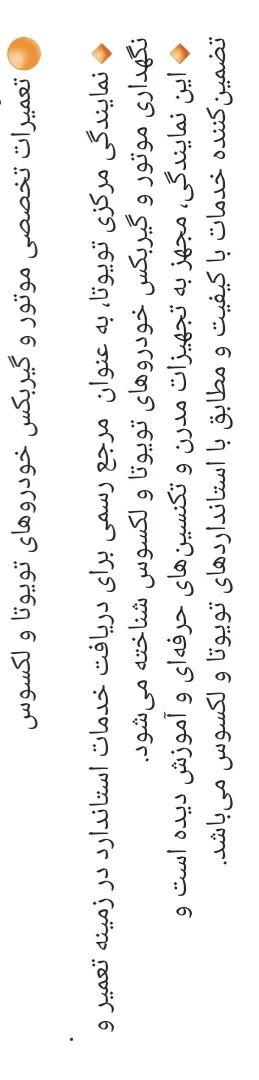 تعمیرات تخصصی موتور و گیربکس خودروهای تویوتا و لکسوس
نمایندگی مرکزی تویوتا، به عنوان مرجع رسمی برای دریافت خدمات استاندارد در زمینه تعمیر و
نگهداری موتور و گیربکس خودروهای تویوتا و لکسوس شناخته می‌شود.
این نمایندگی، مجهز به تجهیزات مدرن و تکنسین‌های حرفه‌ای و آموزش دیده است و
تضمین‌کننده خدمات با کیفیت و مطابق با استانداردهای تویوتا و لکسوس می‌باشد.